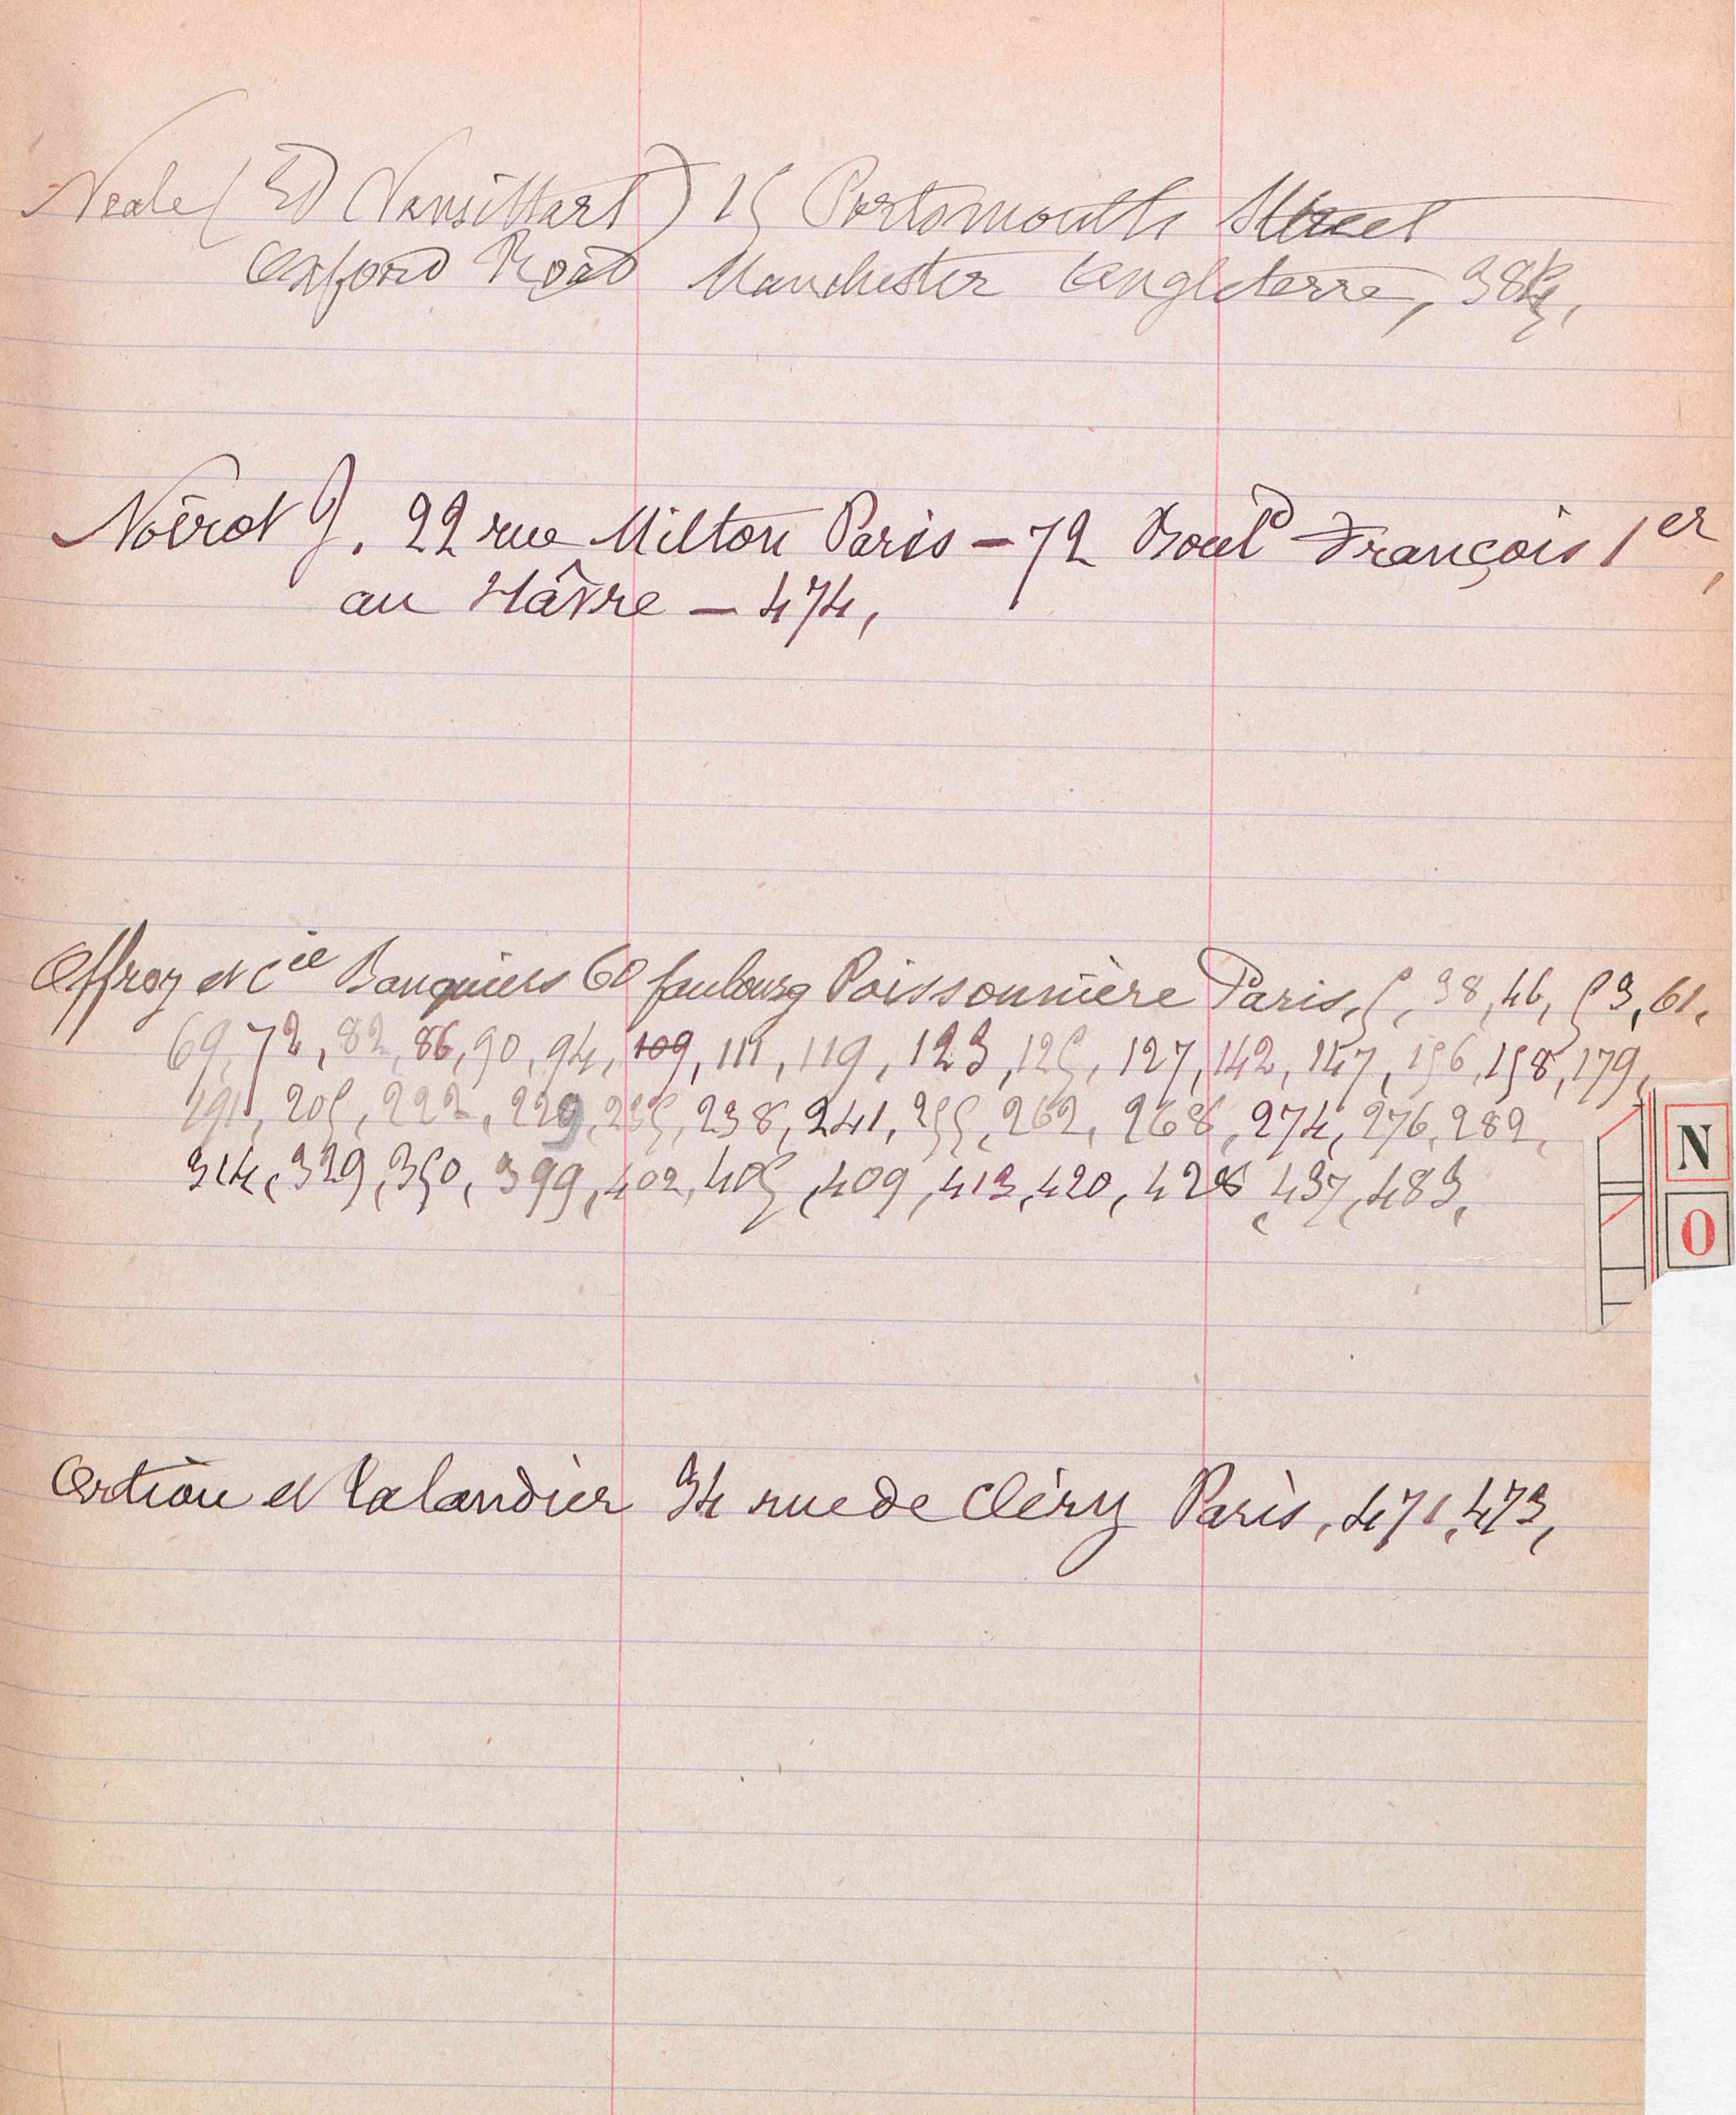 Neale (Ed Vansittart) 15 Portsmouth Street
Oxford Road Manchester Angleterre,
Noirot J. 22 rue Milton Paris – 72 Boul^d François 1^er,
au Hâvre – 474,
Offroy et C^ie Banquiers 60 faubourg Poissonnière Paris, 5, 38, 46, 53, 61,
69, 72, 82, 86, 90, 94, 109, 111, 119, 123, 125, 127, 142, 147, 156, 158, 179,
191, 205, 222, 229, 235, 238, 241, 255, 262, 268, 274, 276, 282,
314, 329, 350, 399, 402, 405, 409, 413, 420, 428, 437, 483,
N
O
Ortiou et Lalandier 34 rue de Cléry Paris, 471, 473,